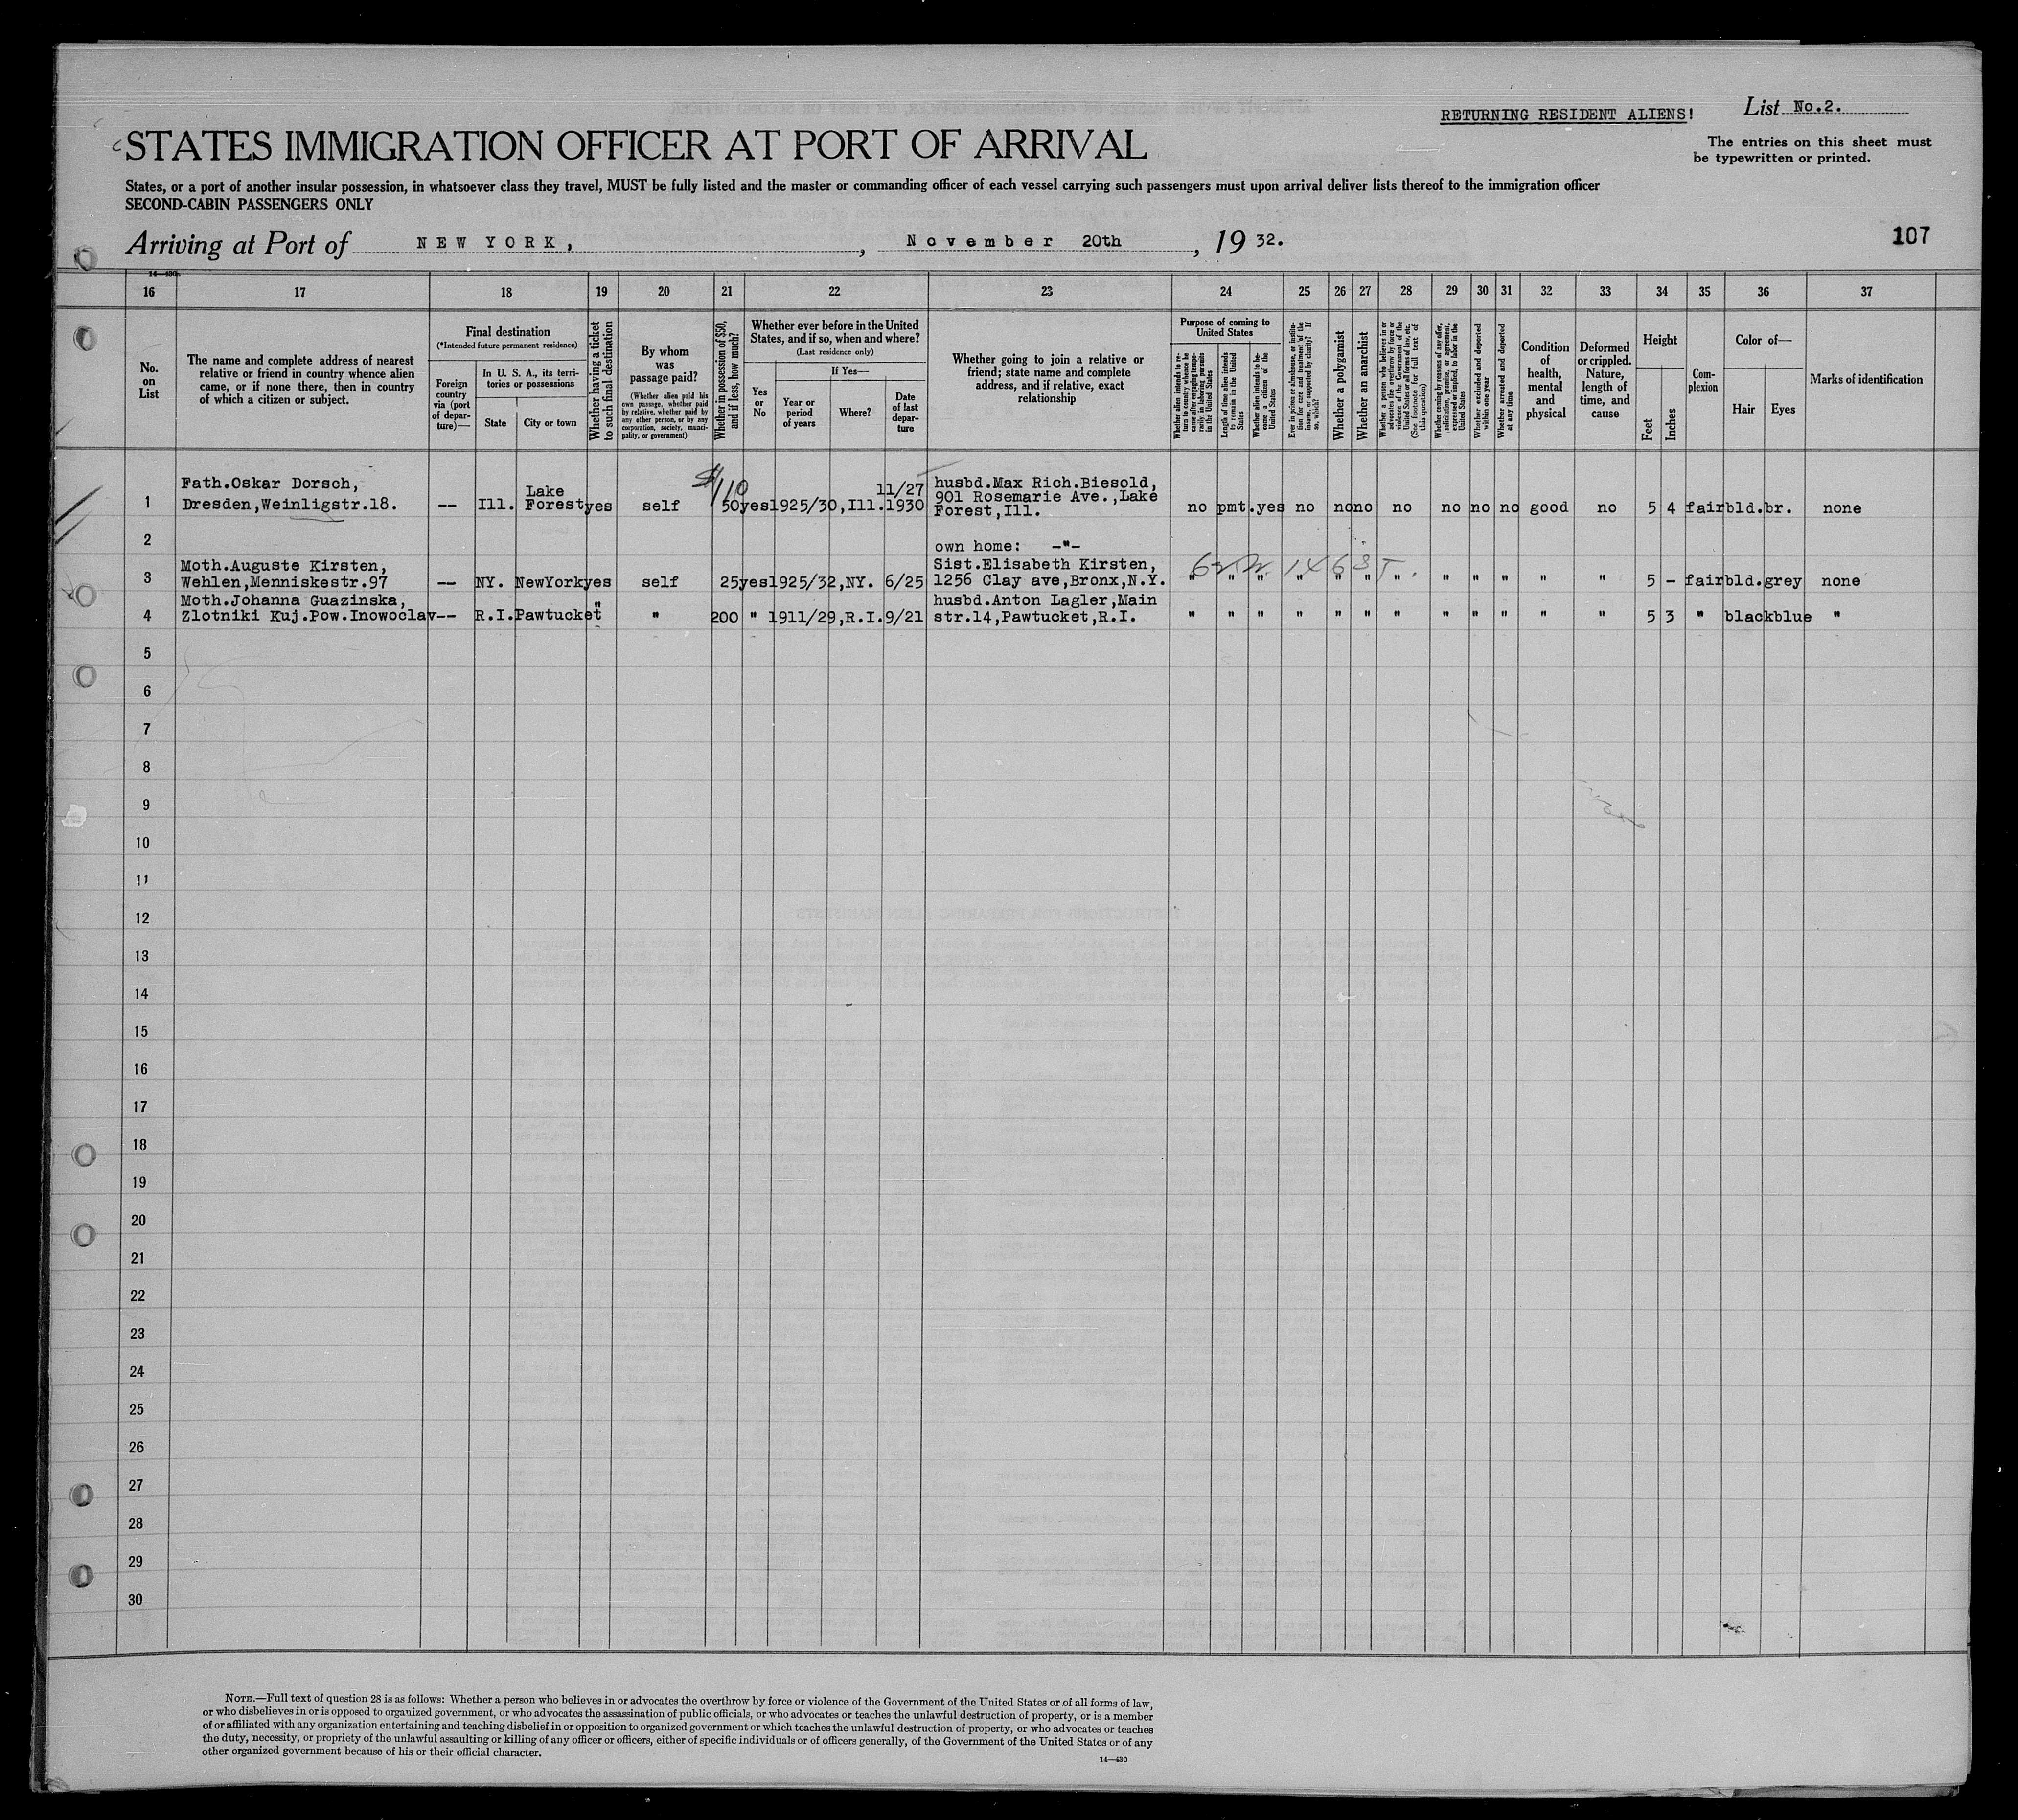 RETURNING RESIDENT ALIENS!
List No.2.
STATES IMMIGRATION OFFICER AT PORT OF ARRIVAL
The entries on this sheet must
be typewritten or printed.
States, or a port of another insular possession, in whatsoever class they travel, MUST be fully listed and the master or commanding officer of each vessel carrying such passengers must upon arrival deliver lists thereof to the immigration officer
SECOND-CABIN PASSENGERS ONLY
Arriving at Port of NEW YORK, , November 20th , 19 32.
107
14—430
16 17 18 19 20 21 22 23 24 25 26 27 28 29 30 31 32 33 34 35 36 37
No.
on
List
The name and complete address of nearest
relative or friend in country whence alien
came, or if none there, then in country
of which a citizen or subject.
Final destination
(*Intended future permanent residence)
Foreign
country
via (port
of depar-
ture)—
In U. S. A., its terri-
tories or possessions
State
City or town
Whether having a ticket
to such final destination
By whom
was
passage paid?
(Whether alien paid his
own passage, whether paid
by relative, whether paid by
any other person, or by any
corporation, society, munici-
pality, or government)
Whether in possession of $50,
and if less, how much?
Whether ever before in the United
States, and if so, when and where?
(Last residence only)
Yes
or
No
If Yes—
Year or
period
of years
Where?
Date
of last
depar-
ture
Whether going to join a relative or
friend; state name and complete
address, and if relative, exact
relationship
Purpose of coming to
United States
Whether alien intends to re-
turn to country whence he
came after engaging tempo-
rarily in laboring pursuits
in the United States
Length of time alien intends
to remain in the United
States
Whether alien intends to be-
come a citizen of the
United States
Ever in prison or almshouse, or institu-
tion for care and treatment of the
insane, or supported by charity? If
so, which?
Whether a polygamist
Whether an anarchist
Whether a person who believes in or
advocates the overthrow by force or
violence of the Government of the
United States or all forms of law, etc.
(See footnote for full text of
this question)
Whether coming by reasons of any offer,
solicitation, promise, or agreement,
expressed or implied, to labor in the
United States
Whether excluded and deported
within one year
Whether arrested and deported
at any time
Condition
of
health,
mental
and
physical
Deformed
or crippled.
Nature,
length of
time, and
cause
Height
Feet
Inches
Com-
plexion
Color of—
Hair
Eyes
Marks of identification
1 Fath.Oskar Dorsch,
Dresden,Weinligstr.18. -- Ill. Lake
Forest yes self 50 yes 1925/30,Ill. 11/27
1930 husbd.Max Rich.Biesold,
901 Rosemarie Ave.,Lake
Forest,Ill. no pmt. yes no no no no no no no good no 5 4 fair bld. br. none
$110
2 own home: -"-
3 Moth.Auguste Kirsten,
Wehlen,Menniskestr.97 -- NY. NewYork yes self 25 yes 1925/32,NY. 6/25 Sist.Elisabeth Kirsten,
1256 Clay ave,Bronx,N.Y. " " " " " " " " " " " " 5 - fair bld. grey none
4 Moth.Johanna Guazinska,
Zlotniki Kuj.Pow.Inowoclav -- R.I. Pawtucket " " 200 " 1911/29,R.I. 9/21 husbd.Anton Lagler,Main
str.14,Pawtucket,R.I. " " " " " " " " " " " " 5 3 " black blue "
5
6
7
8
9
10
11
12
13
14
15
16
17
18
19
20
21
22
23
24
25
26
27
28
29
30
NOTE.—Full text of question 28 is as follows: Whether a person who believes in or advocates the overthrow by force or violence of the Government of the United States or of all forms of law,
or who disbelieves in or is opposed to organized government, or who advocates the assassination of public officials, or who advocates or teaches the unlawful destruction of property, or is a member
of or affiliated with any organization entertaining and teaching disbelief in or opposition to organized government or which teaches the unlawful destruction of property, or who advocates or teaches
the duty, necessity, or propriety of the unlawful assaulting or killing of any officer or officers, either of specific individuals or of officers generally, of the Government of the United States or of any
other organized government because of his or their official character.
14—430